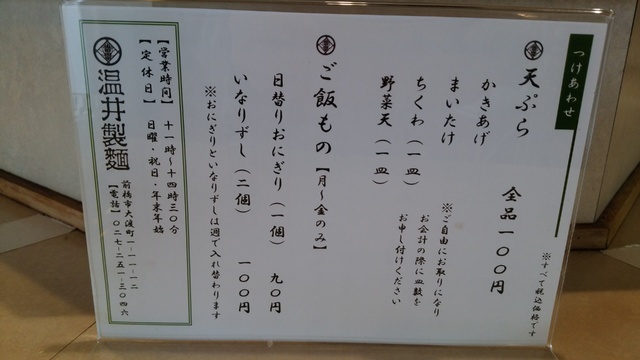 つけあわせ
※すべて税込価格です
天ぷら
全品一〇〇円
かきあげ
まいたけ
ちくわ（一皿）
野菜天（一皿）
※ご自由にお取りになり
お会計の際に皿数を
お申し付けください
ご飯もの【月～金のみ】
日替りおにぎり（一個） 九〇円
いなりずし（二個） 一〇〇円
※おにぎりといなりずしは週で入れ替わります
【営業時間】 十一時～十四時三〇分
【定休日】 日曜・祝日・年末年始
温井製麺
前橋市大渡町一-一一-一二
【電話】〇二七-二五一-三〇四六